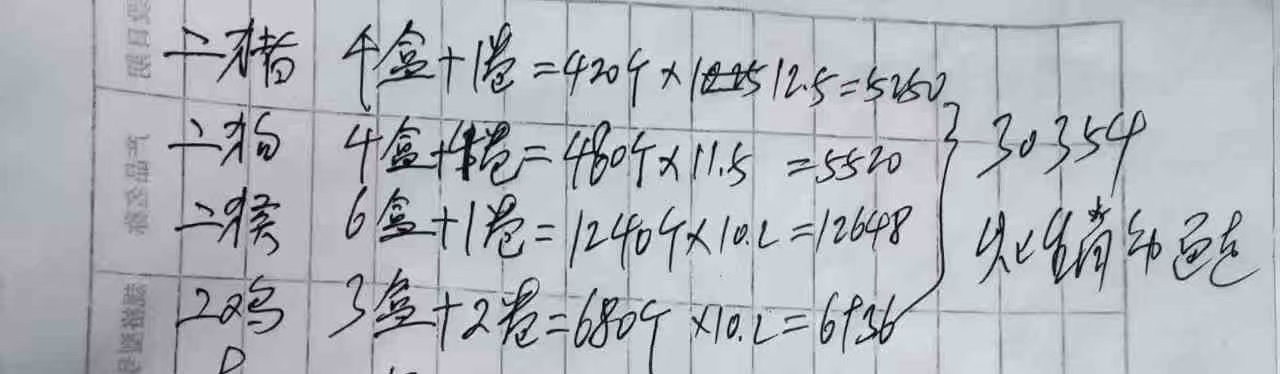 二猪 4盒+1卷=420个×12.5=5250
二狗 4盒+4卷=480个×11.5=5520
二猴 6盒+1卷=1240个×10.2=12648
2鸡 3盒+2卷=680个×10.2=6936
30354